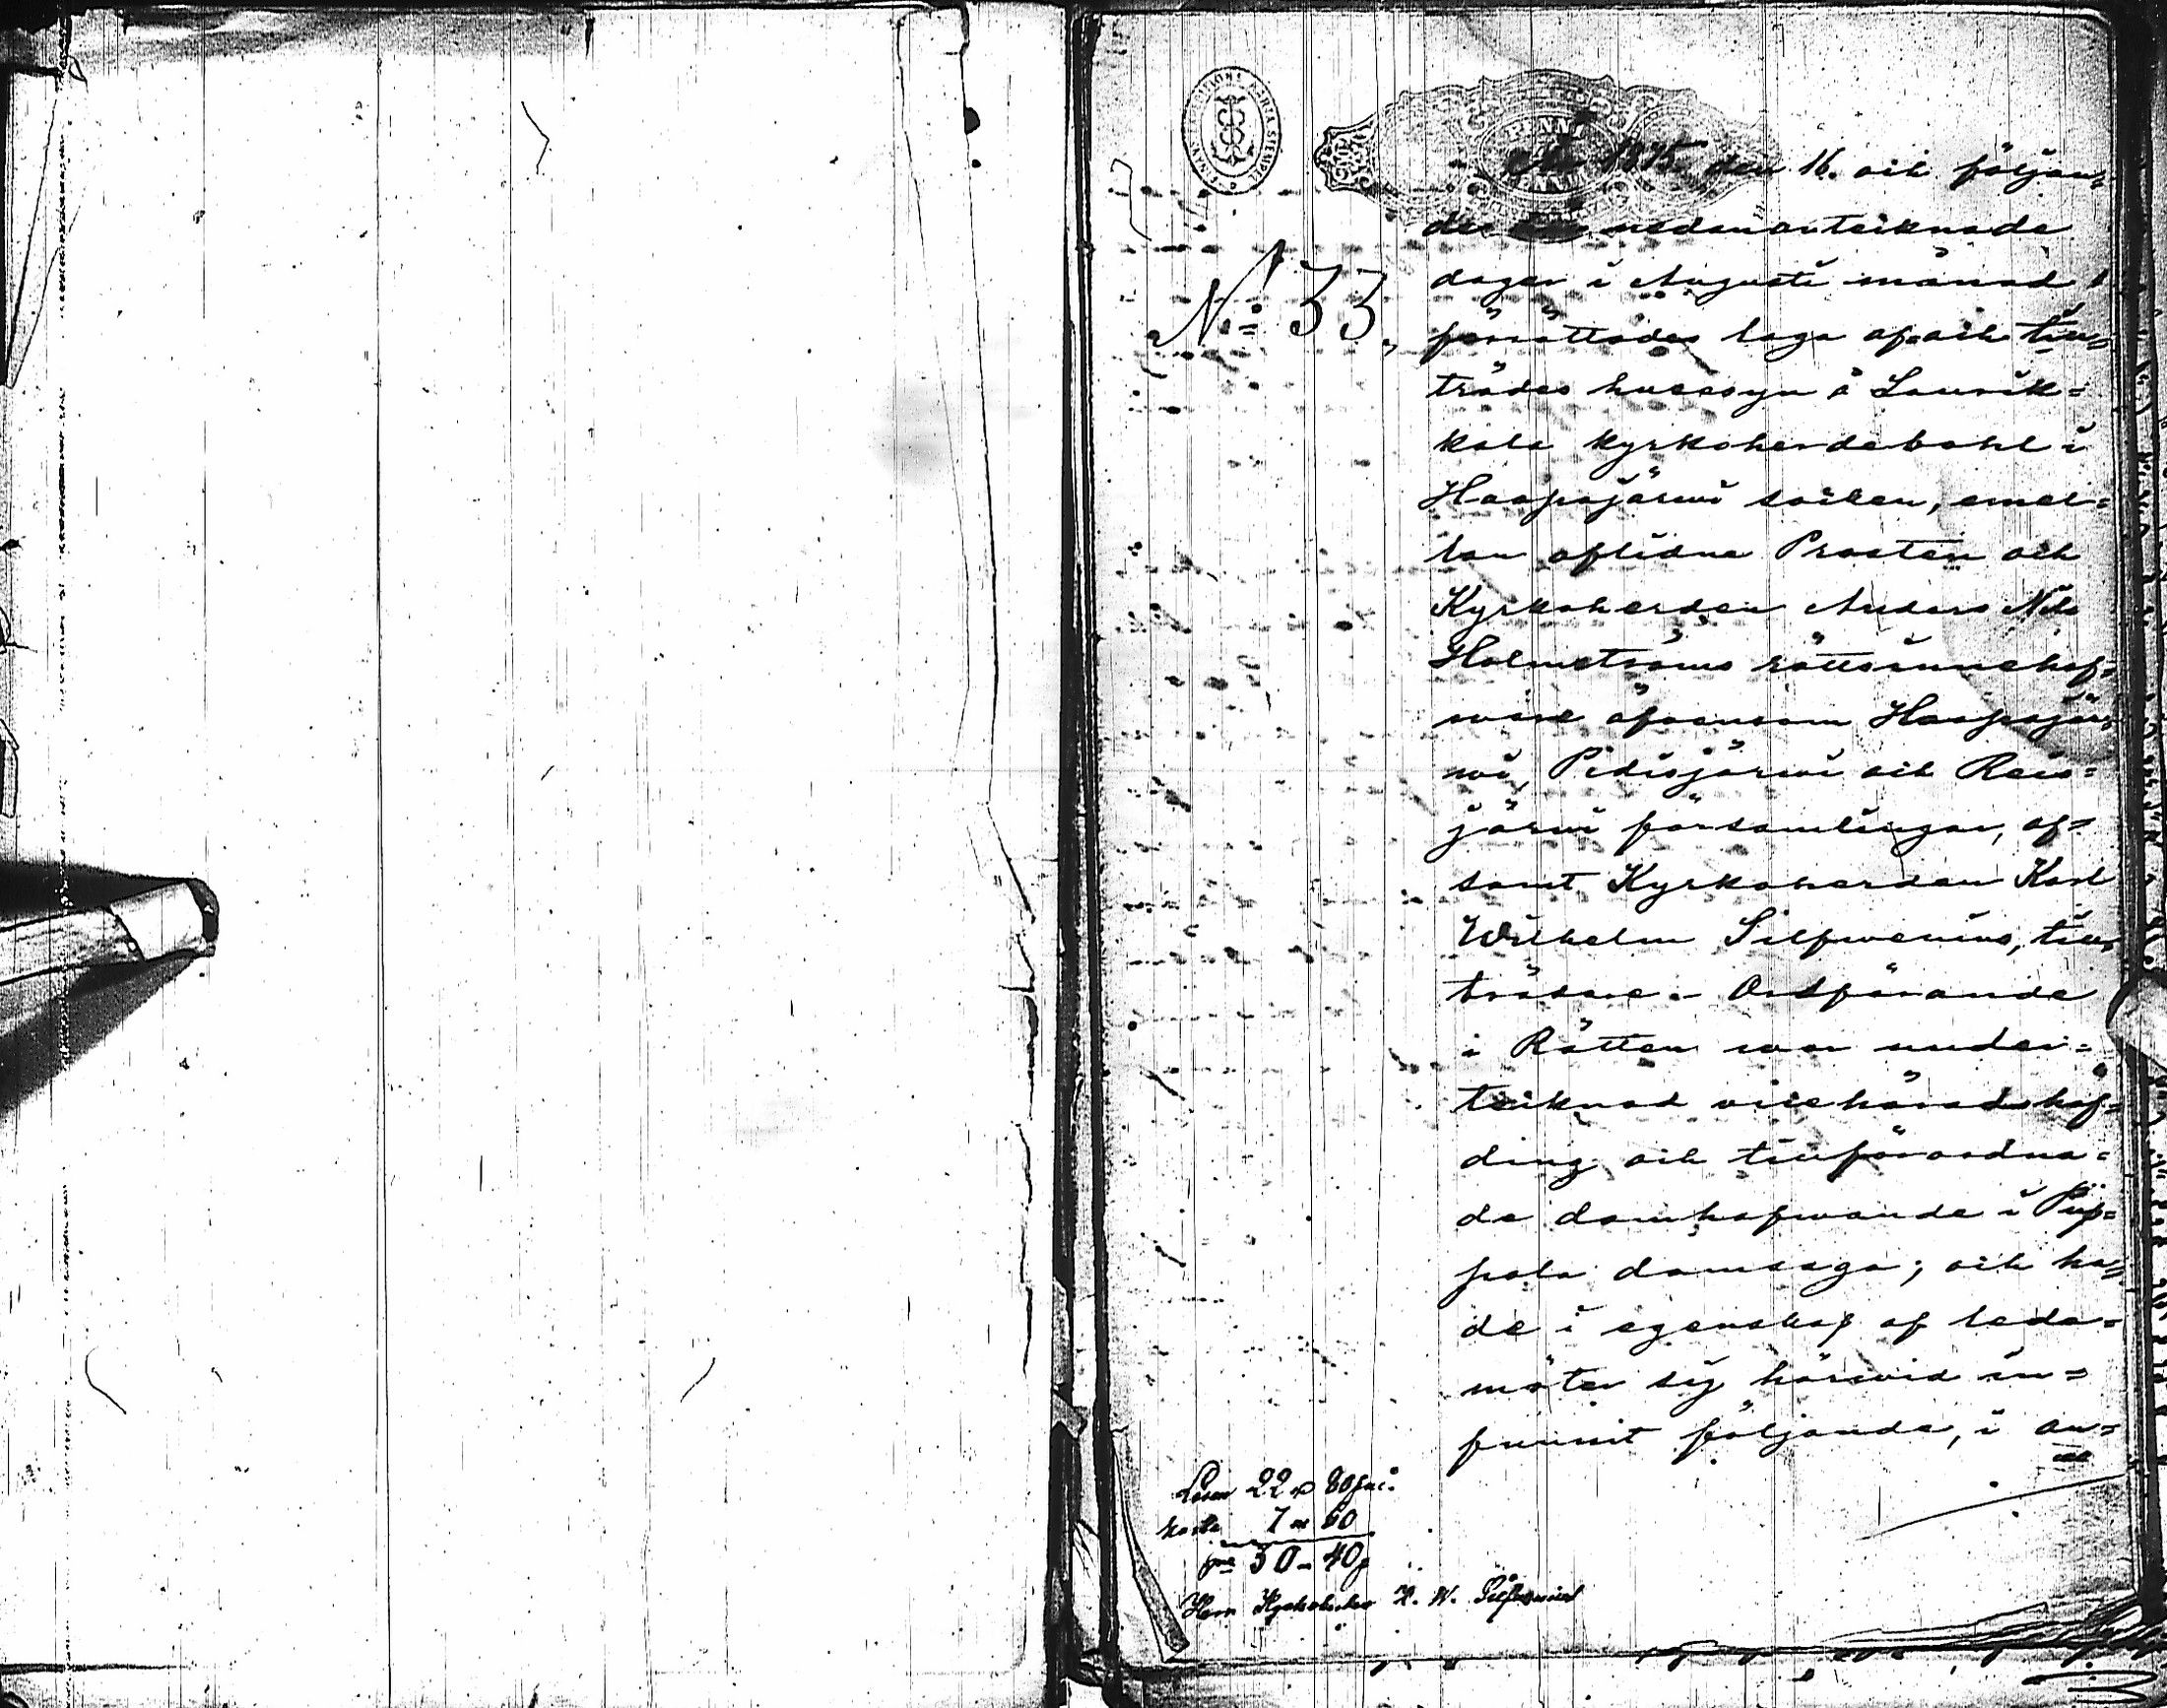 År 1875 den 16. och följan=
de nedanantecknade
dagar i Augusti månad
förrättades laga af= och till=
trädes husesyn å Lauvik=
kala kyrkoherdebohl i
Haapajärvi socken, emel=
lan aflidne Prosten och
Kyrkoherden Anders Nils
Holmströms rättsinnehaf=
ware äfvensom Haapajär=
wi, Pidisjärwi och Reis=
järwi församlingar, af=
samt Kyrkoherden Karl
Wilhelm Silfwenius, till=
trädare. Ordförande
i Rätten war under=
tecknad vicehäradshöf=
ding och tillförordna=
de domhafwande i Piip=
pola domsaga; och ha=
de i egenskap af leda=
möter sig härwid in=
funnit följande, i an=
No 33.
Lösen 22 80 pni.
karta 7 60
30 - 40 p
Herr Kyrkoherden K. W. Silfwenius